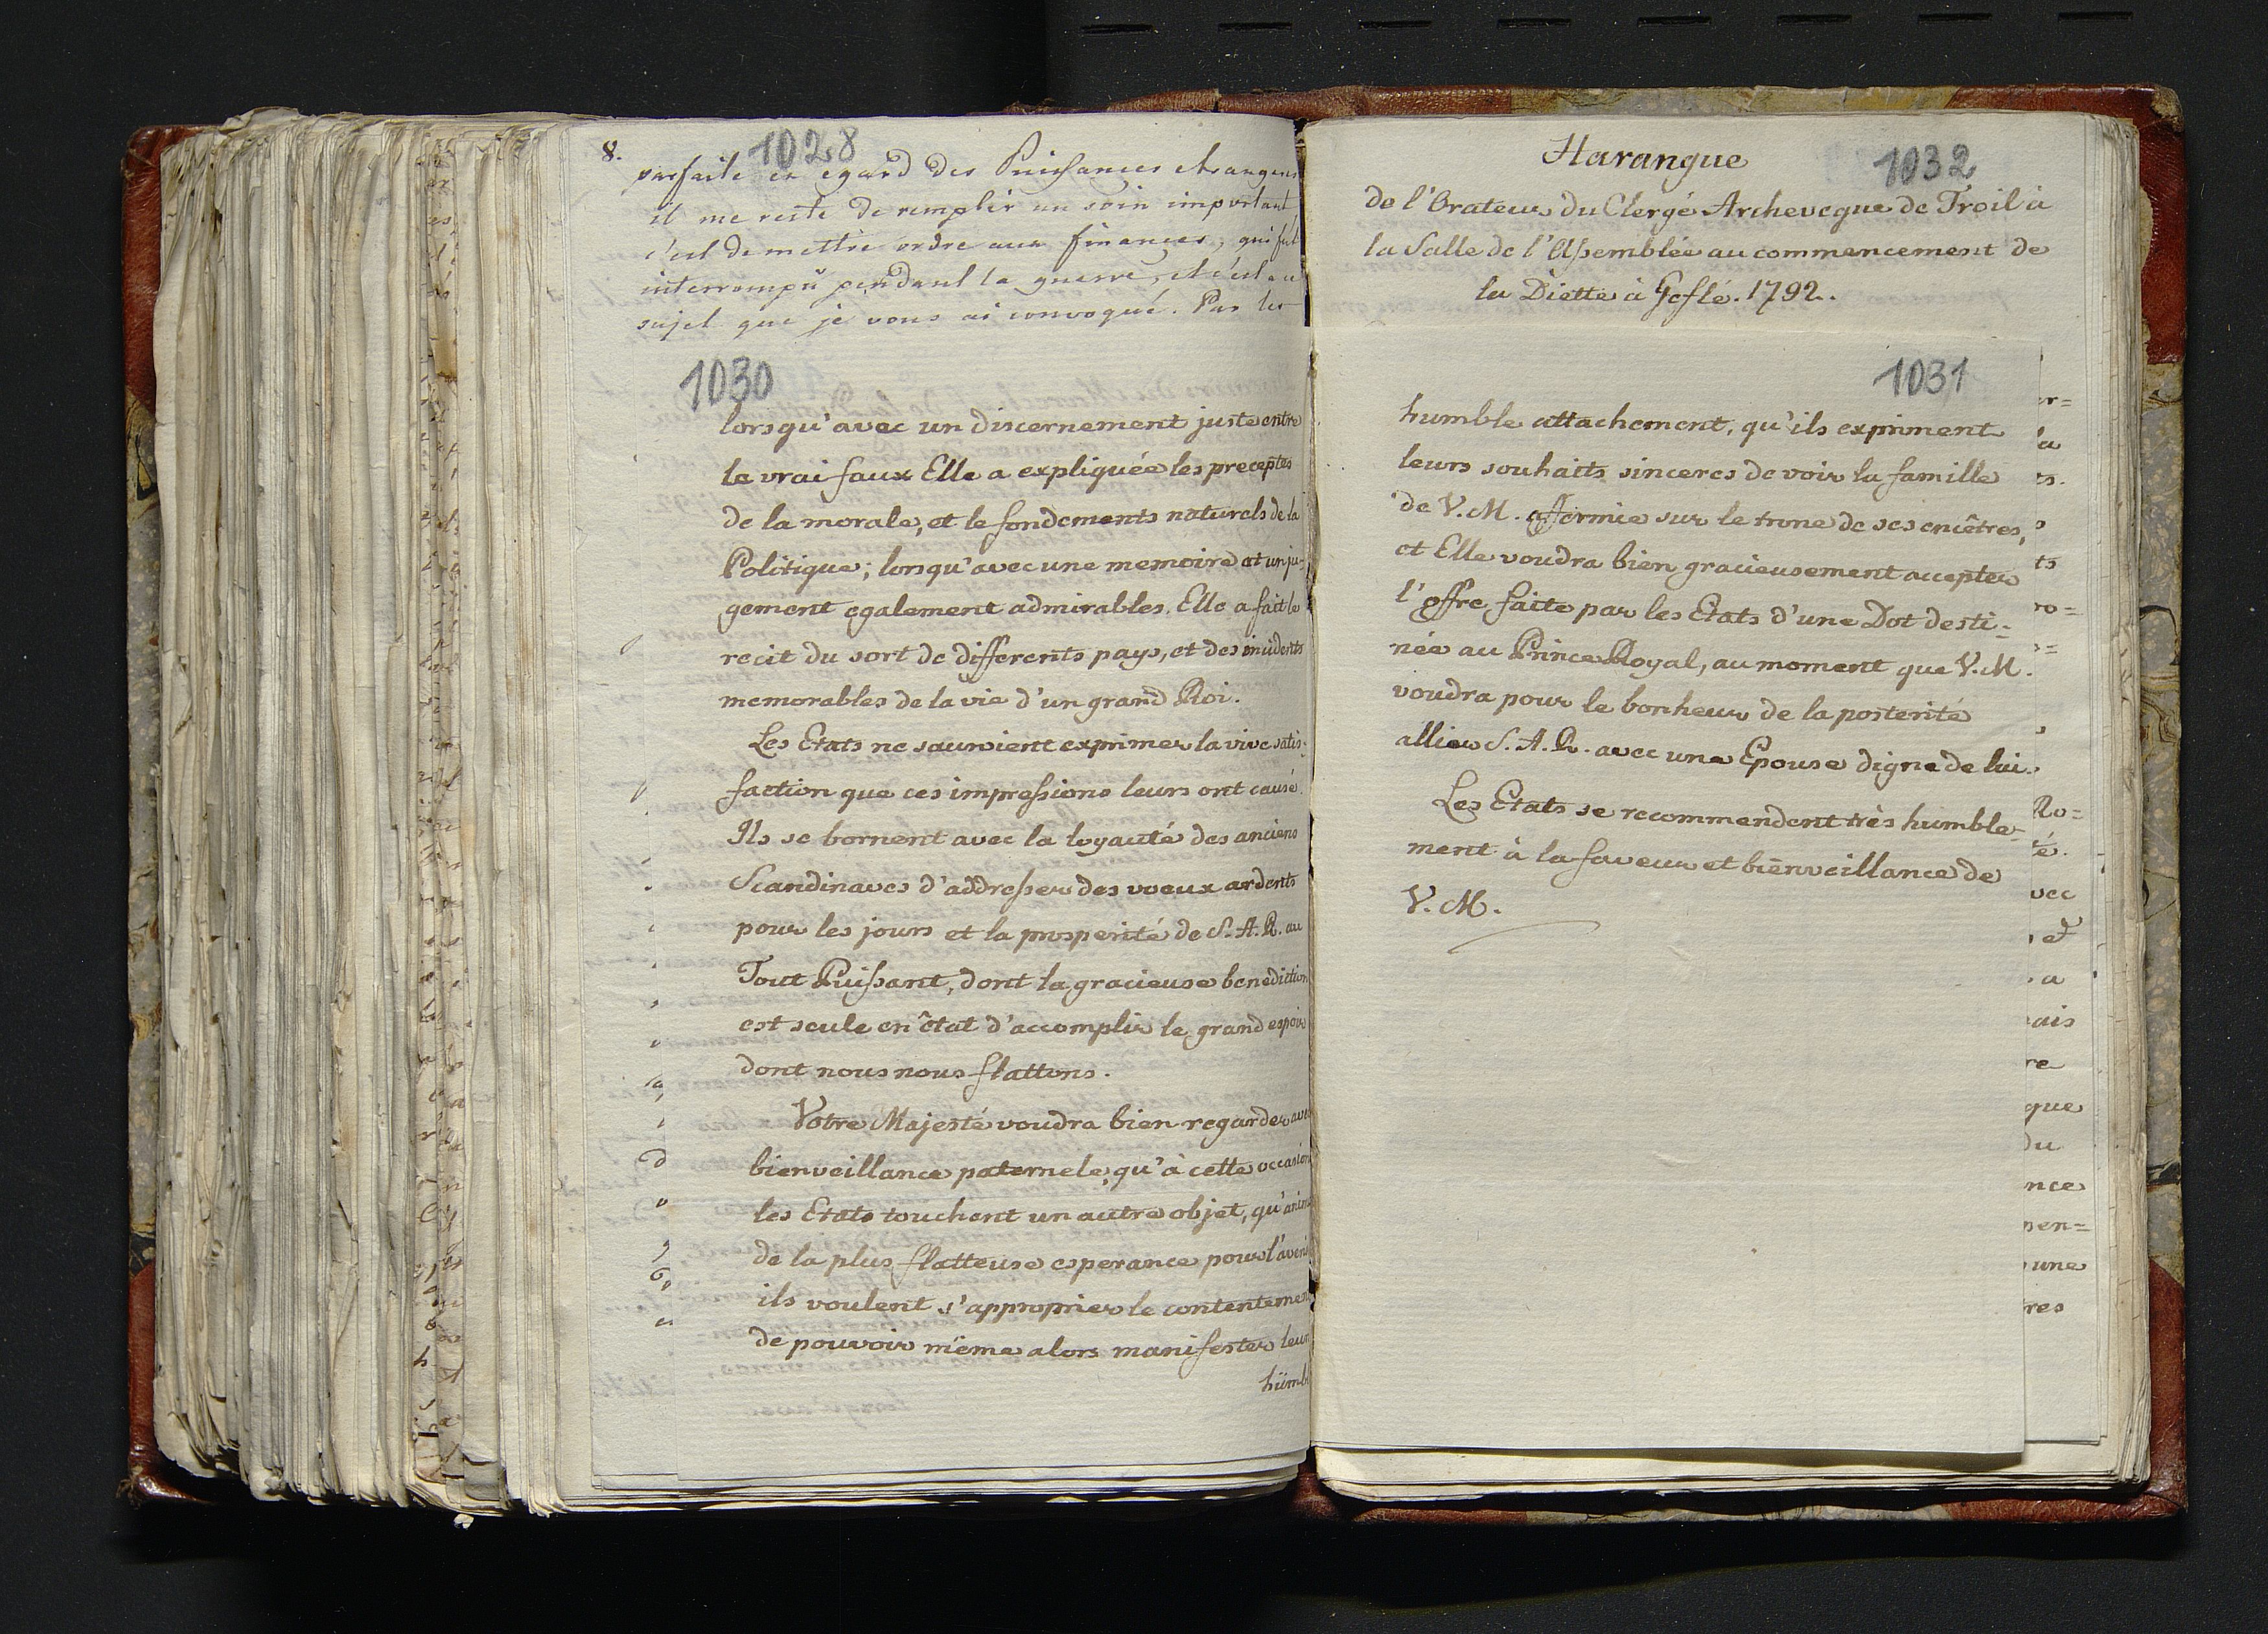 8.
1028
parfaite en egard des Puissances etrangeres
il me reste de remplir un soin important
c'est de mettre ordre aux finances, qui fut
interrompü pendant la guerre, et c'est au
sujet que je vous ai convoqué. Par les
1030
lorsqu'avec un discernement juste entre
le vrai faux Elle a expliquée les preceptes
de la morale, et le fondements naturels de la
Politique; lorsqu'avec une memoire et un ju-
gement egalement admirables. Elle a fait le
recit du sort de differents pays, et des incidents
memorables de la vie d'un grand Roi.
Les Etats ne sauroient exprimer la vive satis:
faction que ces impressions leurs ont causé.
Ils se bornent avec la loyauté des anciens
Scandinaves d'addresser des voeux ardents
pour les jours et la prosperité de S. A. R. au
Tout Puissant, dont la gracieuse benediction
est seule en êtat d'accomplir le grand espoir
dont nous nous flattons.
Votre Majesté voudra bien regarder avec
bienveillance paternele, qu'à cette occasion
les Etats touchent un autre objet, qu'animé
de la plus flatteuse esperance pour l'aveni
ils voulent s'approprier le contentemen
de pouvoir même alors manifester leur
hümb
Harangue
1032
de l'Orateur du Clergé Archeveque de Troil à
la Salle de l'Assemblée au commencement de
la Diette à Gefle. 1792.
1031
humble attachement, qu'ils expriment
leurs souhaits sinceres de voir la famille
de V. M. affermie sur le trone de ses encêtres,
et Elle voudra bien gracieusement accepter
l'offre faite par les Etats d'une Dot desti:
née au Prince Royal, au moment que V. M.
voudra pour le bonheur de la posterité
allier S. A. R. avec une Epouse digne de lui.
Les Etats se recommendent très humble-
ment à la faveur et bienveillance de
V. M.